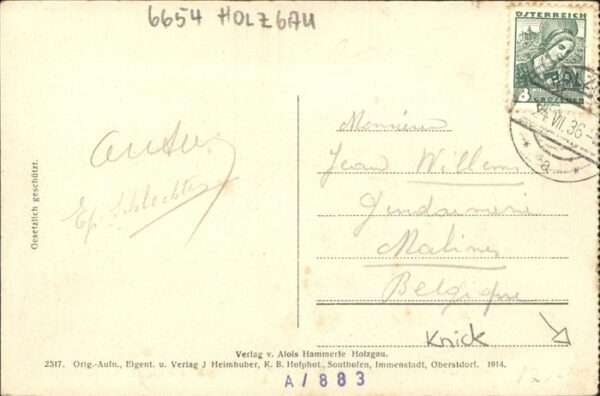 6654 HOLZGAU
ÖSTERREICH
3 GROSCHEN
HOLZ
24 VII.36
a
Monsieur
Jean Willems
Gendarmerie
Malines
Belgique
Knick
Gesetzlich geschützt.
Verlag v. Alois Hammerle Holzgau.
2317. Orig.-Aufn., Eigent. u. Verlag J Heimhuber, K. B. Hofphot., Sonthofen, Immenstadt, Oberstdorf. 1914.
A/883